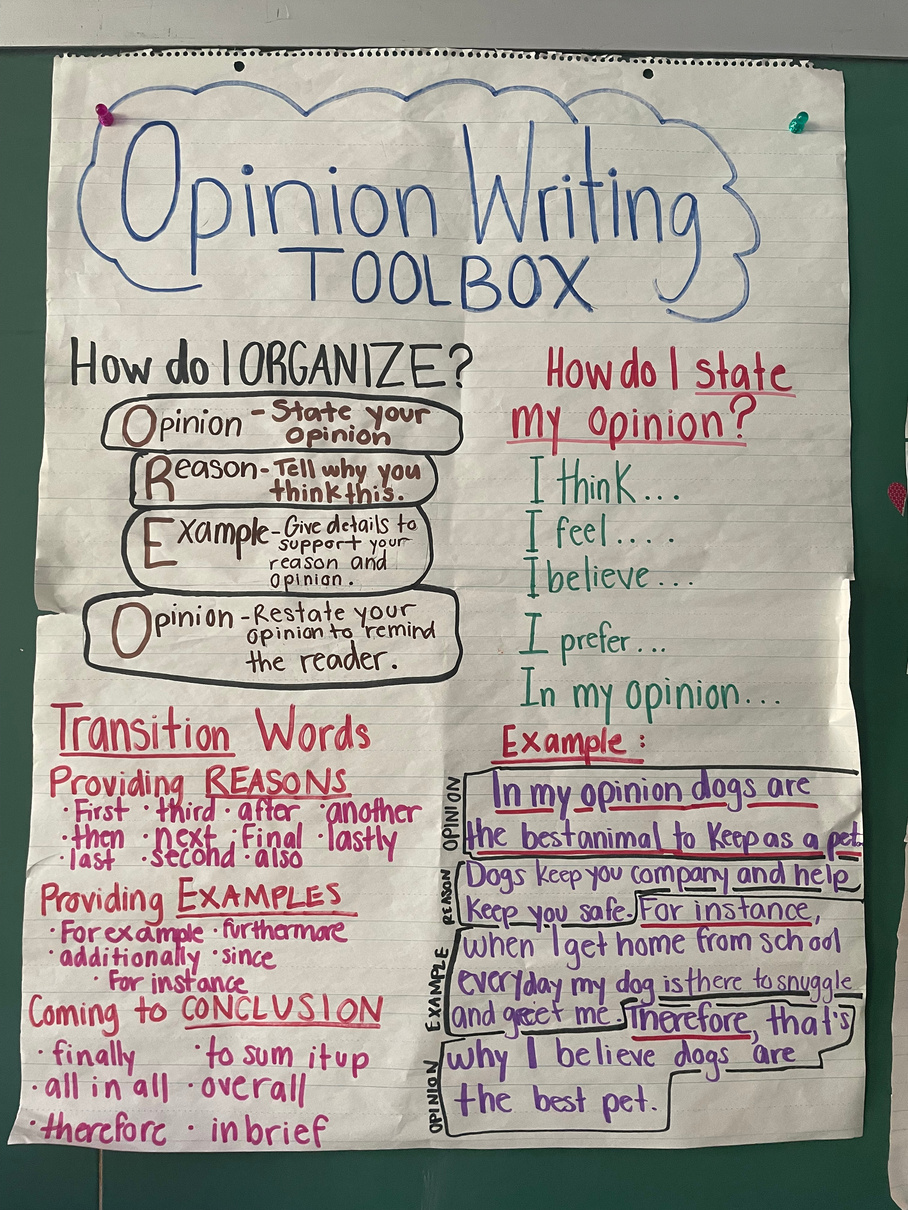 Opinion Writing
TOOLBOX
How do I ORGANIZE?
Opinion - State your
opinion
Reason - Tell why you
think this.
Example - Give details to
support your
reason and
opinion.
Opinion - Restate your
opinion to remind
the reader.
How do I state
my opinion?
I think...
I feel....
I believe...
I prefer...
In my opinion...
Transition Words
Providing REASONS
· First · third · after · another
· then · next · Final · lastly
· last · second · also
Providing EXAMPLES
· For example · furthermore
· additionally · since
· For instance
Coming to CONCLUSION
· finally · to sum it up
· all in all · overall
· therefore · in brief
Example:
OPINION
In my opinion dogs are
the best animal to keep as a pet.
REASON
Dogs keep you company and help
keep you safe. For instance,
EXAMPLE
when I get home from school
everyday my dog is there to snuggle
and greet me. Therefore, that's
OPINION
why I believe dogs are
the best pet.